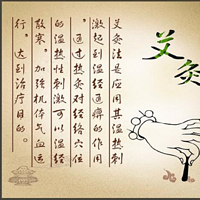 艾灸
艾灸法是应用其温热刺
激起到温经通痹的作用
。通过热灸对经络穴位
的温热性刺激可以温经
散寒，加强机体气血运
行，达到治疗目的。